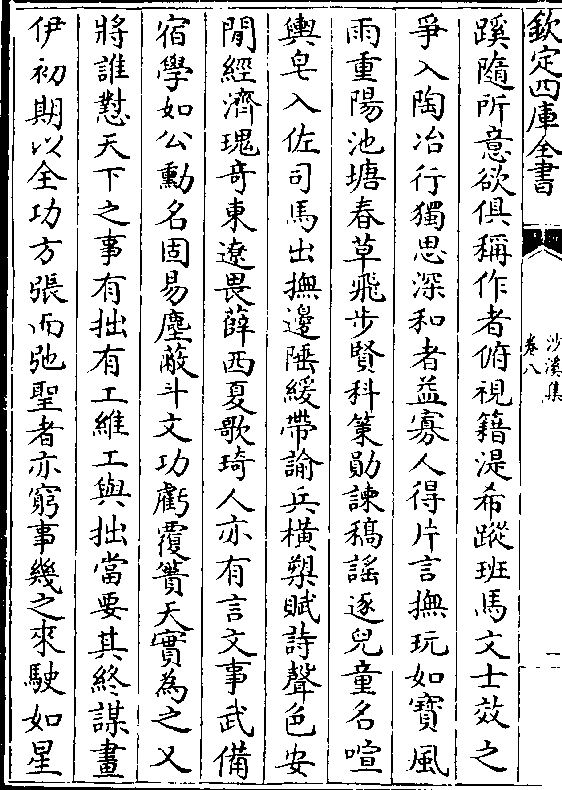 欽定四庫全書
沙溪集
卷八
一
蹊隨所意欲俱稱作者俯視籍湜希蹤班馬文士效之
爭入陶冶行獨思深和者益寡人得片言撫玩如寶風
雨重陽池塘春草飛步賢科策勛諫稿謡逐兒童名喧
輿皂入佐司馬出撫邊陲緩帶諭兵横槊賦詩聲色安
閒經濟瑰竒東遼畏薛西夏歌琦人亦有言文事武備
宿學如公勳名固易塵蔽斗文功虧覆簣天實為之又
將誰懟天下之事有拙有工維工與拙當要其終謀畫
伊初期以全功方張而弛聖者亦窮事幾之來駛如星